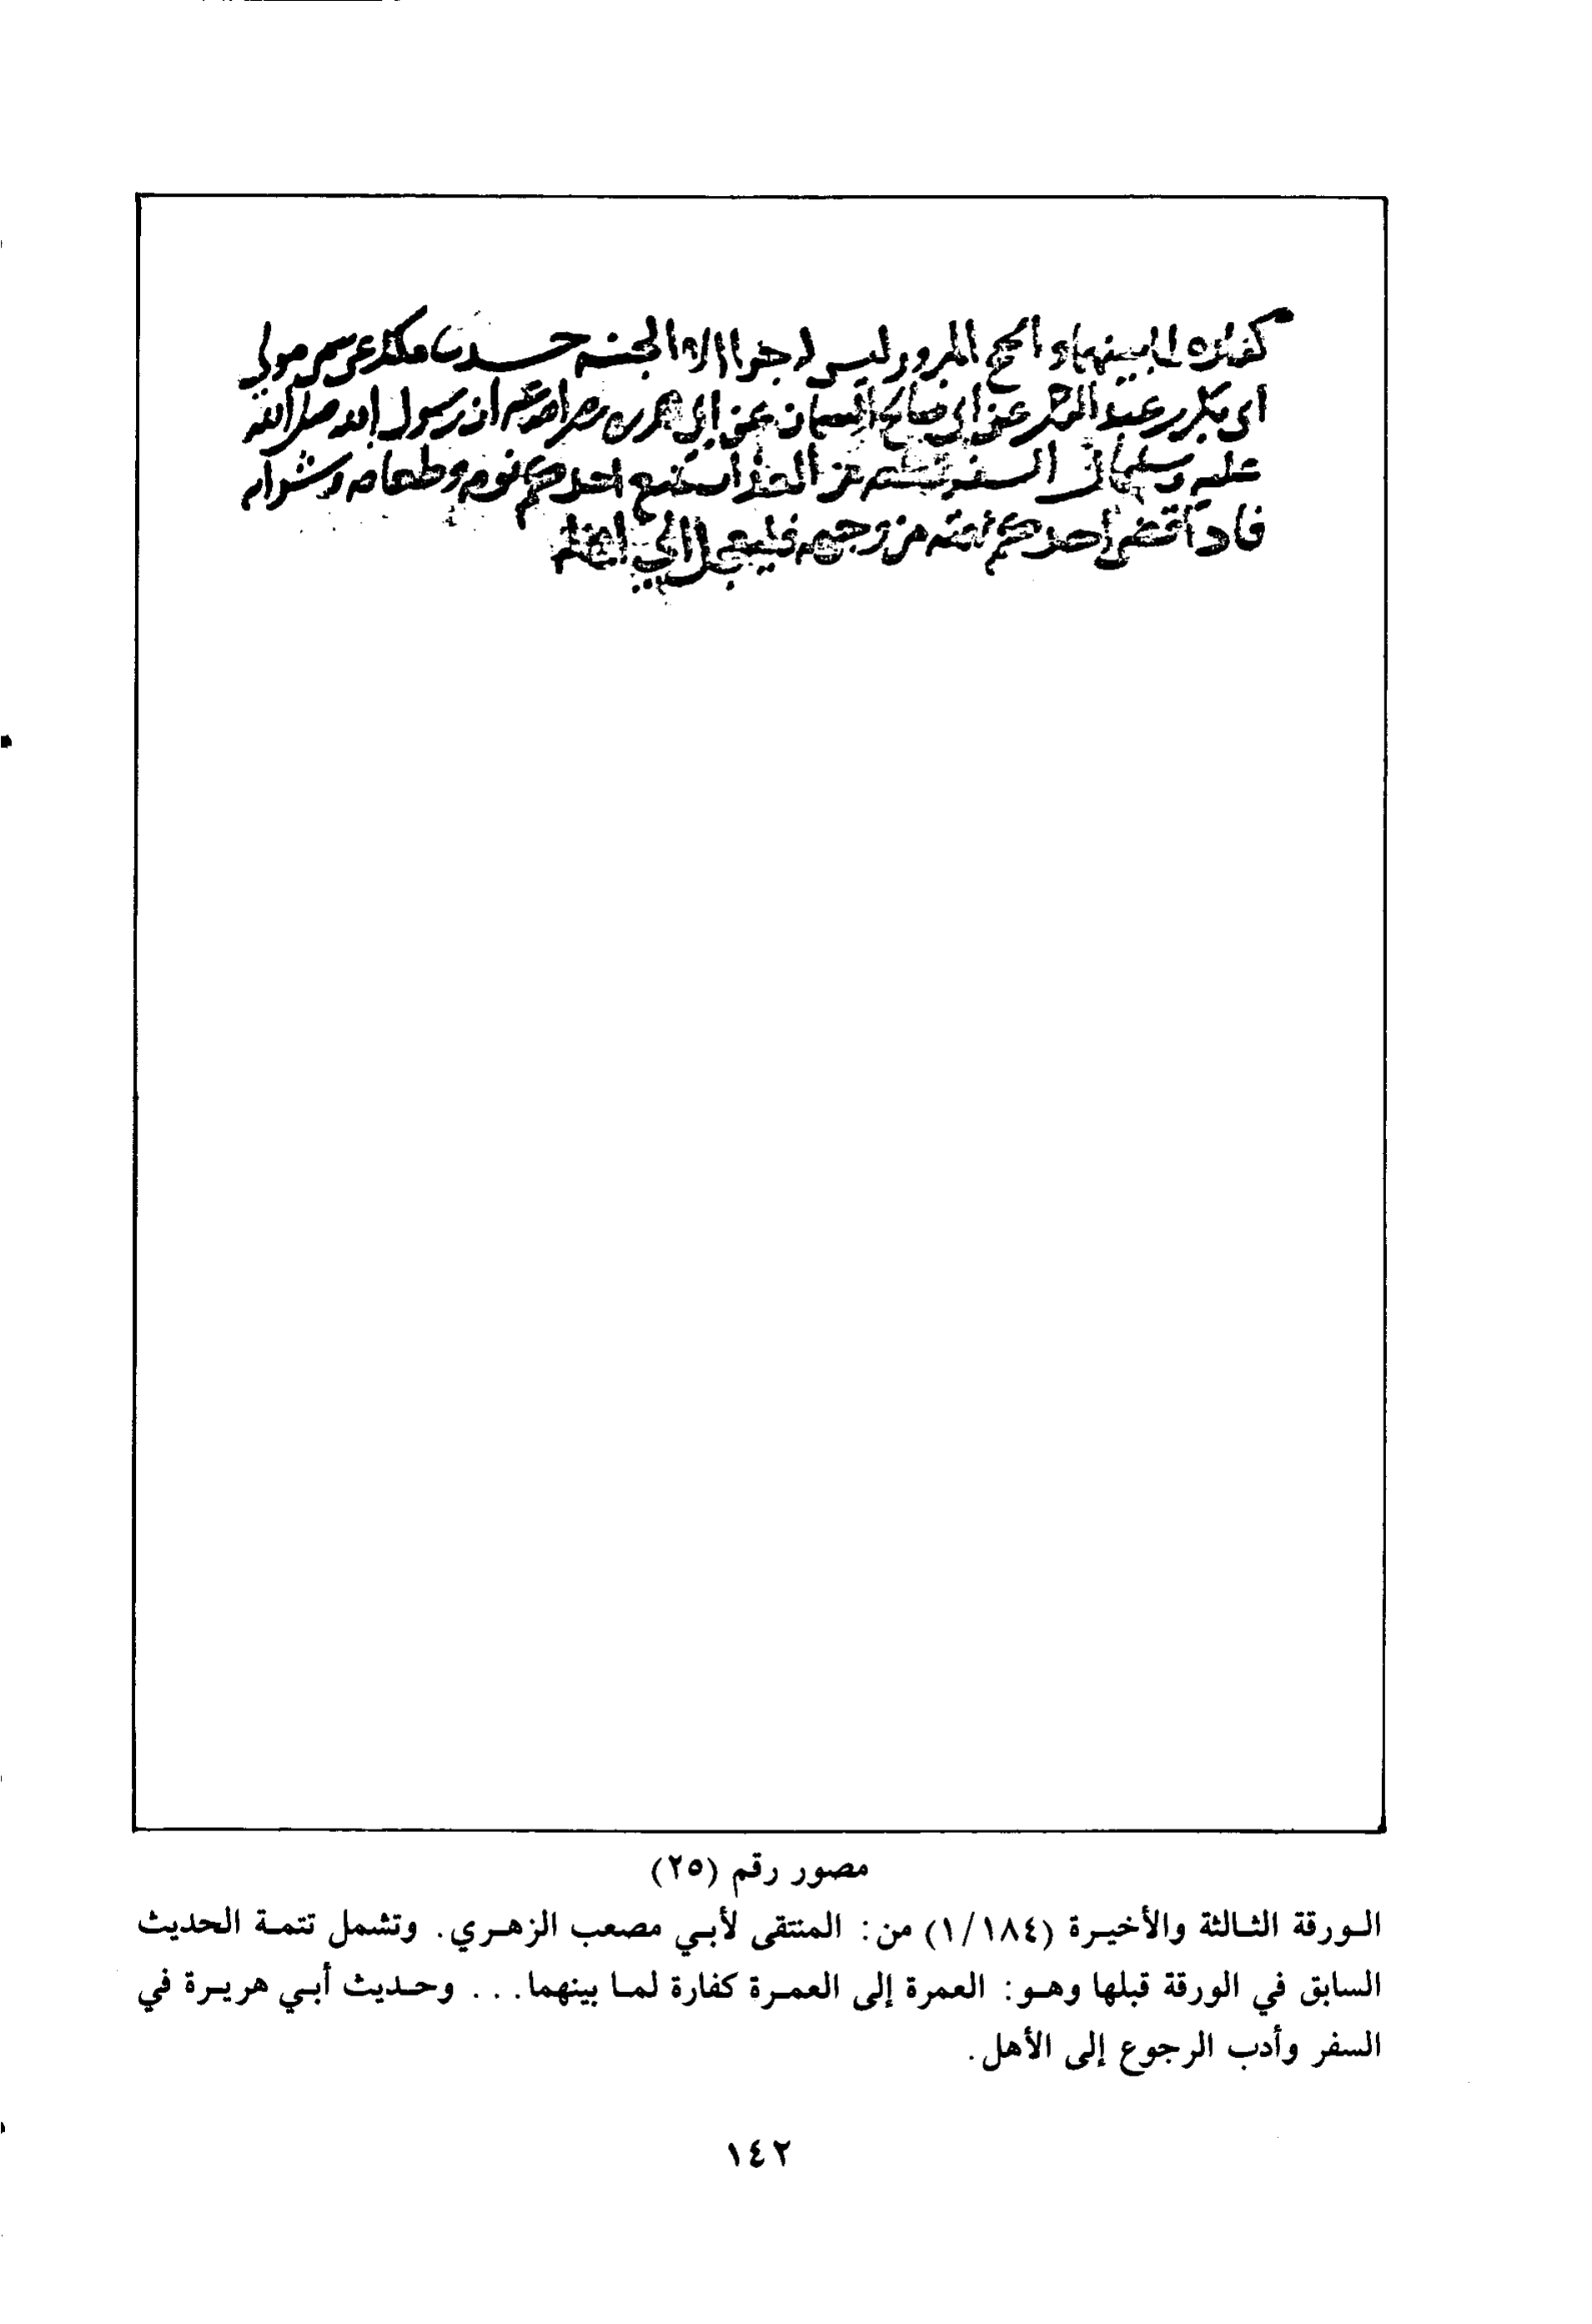 كفاره لما بينهما والحج المبرور ليس له جزا الا الجنه حدثنا ملك عن سمي مولى
ابي بكر بن عبد الرحمن عن ابي صالح السمان عن ابي هريره رضي الله عنه ان رسول الله صلى الله
عليه وسلم قال السفر قطعه من العذاب يمنع احدكم نومه وطعامه وشرابه
فاذا قضى احدكم نهمته من وجهه فليعجل الى اهله
مصور رقم (٢٥)
الورقة الثالثة والأخيرة (١/١٨٤) من: المنتقى لأبي مصعب الزهري. وتشمل تتمة الحديث
السابق في الورقة قبلها وهو: العمرة إلى العمرة كفارة لما بينهما... وحديث أبي هريرة في
السفر وأدب الرجوع إلى الأهل.
١٤٢